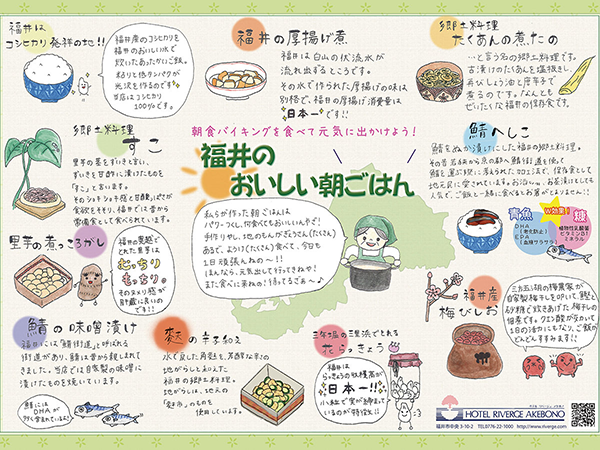 福井は
コシヒカリ発祥の地!!
福井産のコシヒカリを
福井のおいしい水で
炊いたあったかいご飯。
粘りと低タンパクが
光沢を作るのです
当店はコシヒカリ
100%です。
福井の厚揚げ煮
福井は白山の伏流水が
流れ出するところです。
その水で作られた厚揚げの味は
別格で、福井の厚揚げ消費量は
日本一です!!
郷土料理
たくあんの煮たの
…と言う名の郷土料理です。
古漬けのたくあんを塩抜きし、
再びしょう油と唐辛子で
煮るのです。なんとも
ぜいたくな福井の保存食です。
朝食バイキングを食べて元気に出かけよう!
福井の
おいしい朝ごはん
郷土料理
すこ
里芋の茎をずいきと言い、
ずいきを甘酢に漬けたものを
「すこ」と言います。
そのシャキシャキ感と甘酸っぱさが
食欲をそそり、福井では昔から
常備食として食べられています。
鯖へしこ
鯖をぬか漬けにした福井の郷土料理。
鯖を運ぶ際に考えられた加工法で、保存食として
地元民に愛されています。
人気で、ご飯と一緒に食べるとお箸がとまりませんよ〜!!
青魚
DHA
(老化防止)
EPA
(血糖サラサラ)
W効果!
糠
植物性乳酸菌
ビタミンB1
ミネラル
私らが作った朝ごはんは
パワーつくし、何食べてもおいしいんやざ!
手作りやし、地のもんがぎょうさん(たくさん)
あるで、ようけ(たくさん)食べて、今日も
1日頑張んねの〜!!
ほんなら、元気出して行ってきねや!
また食べに来ねの!待ってるざぁ〜♪
里芋の煮っころがし
福井の奥越で
とれた里芋は
むっちり
もっちり。
そのヌメリ感が
肝臓に良いの
です!!
福井産
梅びしお
三方五湖の梅農家が
自家製梅干しを叩いて、鰹と
砂糖で炊きあげた梅干しの
佃煮です。クエン酸が交わいて
1日の活力にもなり、ご飯が
どんどんすすみます!!
鯖の味噌漬け
福井には「鯖街道」と呼ばれる
街道があり、鯖は昔から親しまれて
きました。当店では自家製の味噌に
漬けたものを焼いています。
鯖には
DHAが
多く含まれているんだ!
茎の辛子和え
福井の郷土料理。
地がらしは、地元の
のものを
使用しています。
三年掘の三里浜でとれる
花らっきょう
福井は
らっきょうの収穫高が
日本一!!
小粒で実が締まって
いるのが特徴!!
HOTEL RIVERGE AKEBONO
福井市中央 3-10-2 TEL0776-22-1000 http://www.riverge.com